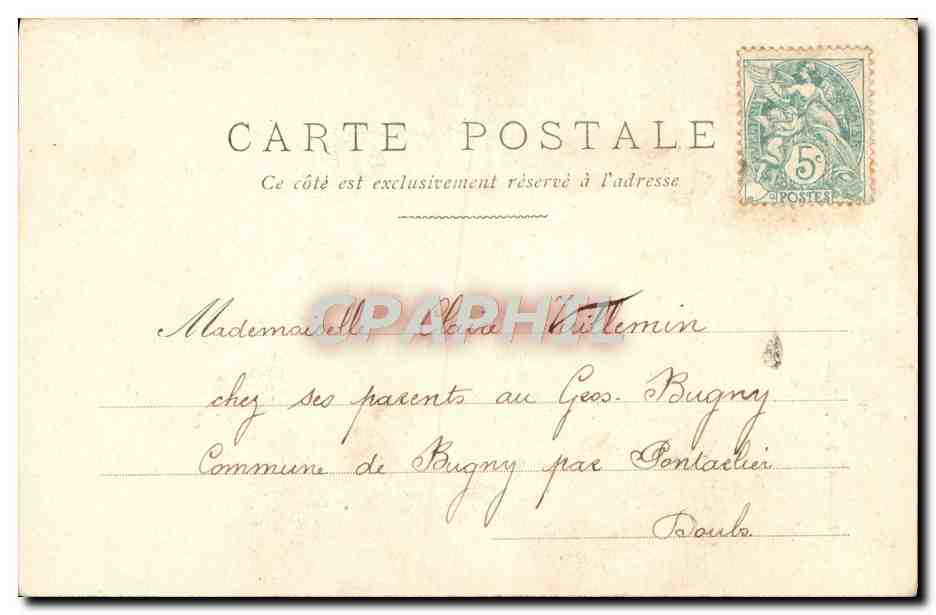 CARTE POSTALE
Ce côté est exclusivement réservé à l'adresse
5c
POSTES
CPAPHIL
Mademoiselle Claire Vuillemin
chez ses parents au Gros-Bugny
Commune de Bugny par Pontarlier
Doubs.